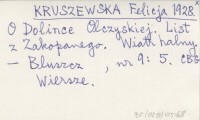 KRUSZEWSKA Felicja 1928
O Dolince Olczyskiej. List
z Zakopanego. Wiatr halny
— Bluszcz , nr 9: 5. CBS
Wiersze.